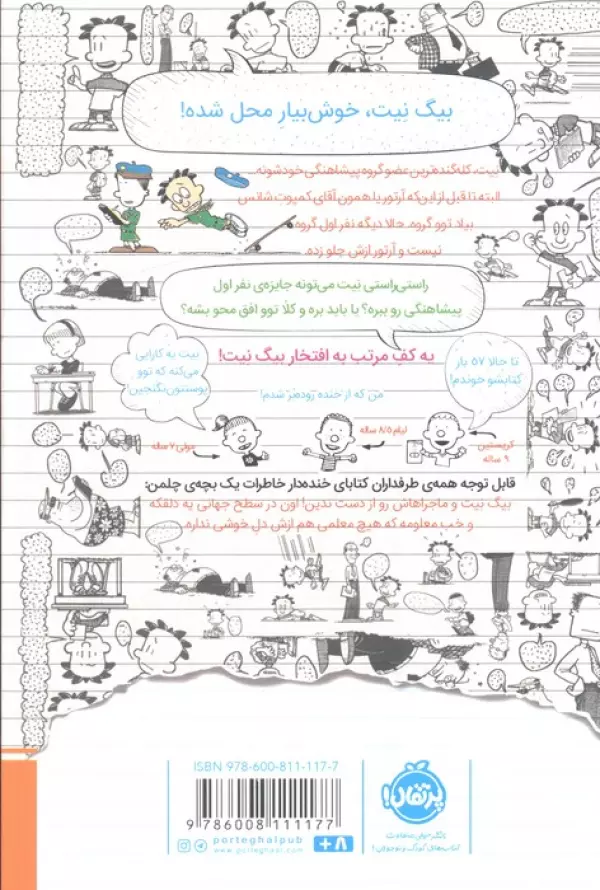 بیگ نِیت، خوش‌بیارِ محل شده!
نیت، کله‌گنده‌ترین عضو گروه پیشاهنگی خودشونه.
البته تا قبل از این‌که آرتور یا همون آقای کمپوت شانس
بیاد توو گروه. حالا دیگه نفر اول گروه
نیست و آرتور ازش جلو زده.
راستی‌راستی نیت می‌تونه جایزه‌ی نفر اول
پیشاهنگی رو ببره؟ یا باید بره و کلاً توو افق محو بشه؟
یه کفِ مرتب به افتخار بیگ نِیت!
تا حالا ۵۷ بار
کتابشو خوندم!
من که از خنده روده‌بُر شدم!
نیت یه کارایی
می‌کنه که توو
پوستتون نگنجین!
کریستین
۹ ساله
لیام ۸/۵ ساله
مولی ۷ ساله
قابل توجه همه‌ی طرفداران کتابای خنده‌دار خاطرات یک بچه‌ی چلمن:
بیگ نِیت و ماجراهاش رو از دست ندین! اون در سطح جهانی یه دلقکه
و خب معلومه که هیچ معلمی هم ازش دلِ خوشی نداره.
ISBN 978-600-811-117-7
9 786008 111177
porteghalpub
www.porteghaal.com
+۸
پرتقال!
کتاب‌های کودک و نوجوان